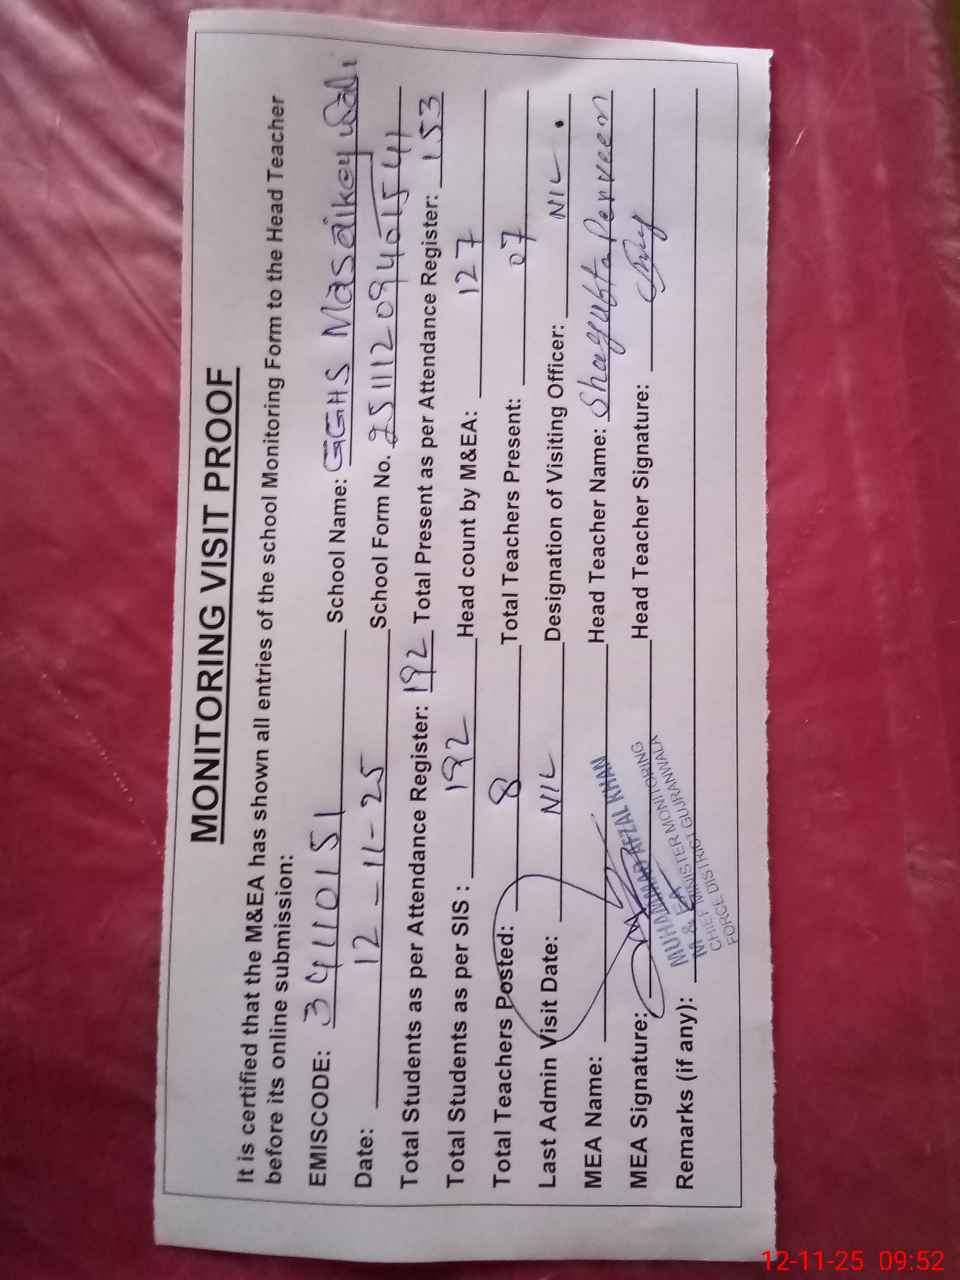 MONITORING VISIT PROOF
It is certified that the M&EA has shown all entries of the school Monitoring Form to the Head Teacher
before its online submission:
EMISCODE: 34110151 School Name: GGHS Masaikey
Date: 12-11-25 School Form No. 25111209401541
Total Students as per Attendance Register: 192 Total Present as per Attendance Register: 153
Total Students as per SIS: 192 Head count by M&EA: 127
Total Teachers Posted: 8 Total Teachers Present: 07
Last Admin Visit Date: NIL Designation of Visiting Officer: NIL
MEA Name: Head Teacher Name: Shagufta Perveen
MEA Signature: Head Teacher Signature:
Remarks (if any):
MUHAMMAD AFZAL KHAN
M & EA
CHIEF MINISTER MONITORING
FORCE DISTRICT GUJRANWALA
12-11-25 09:52